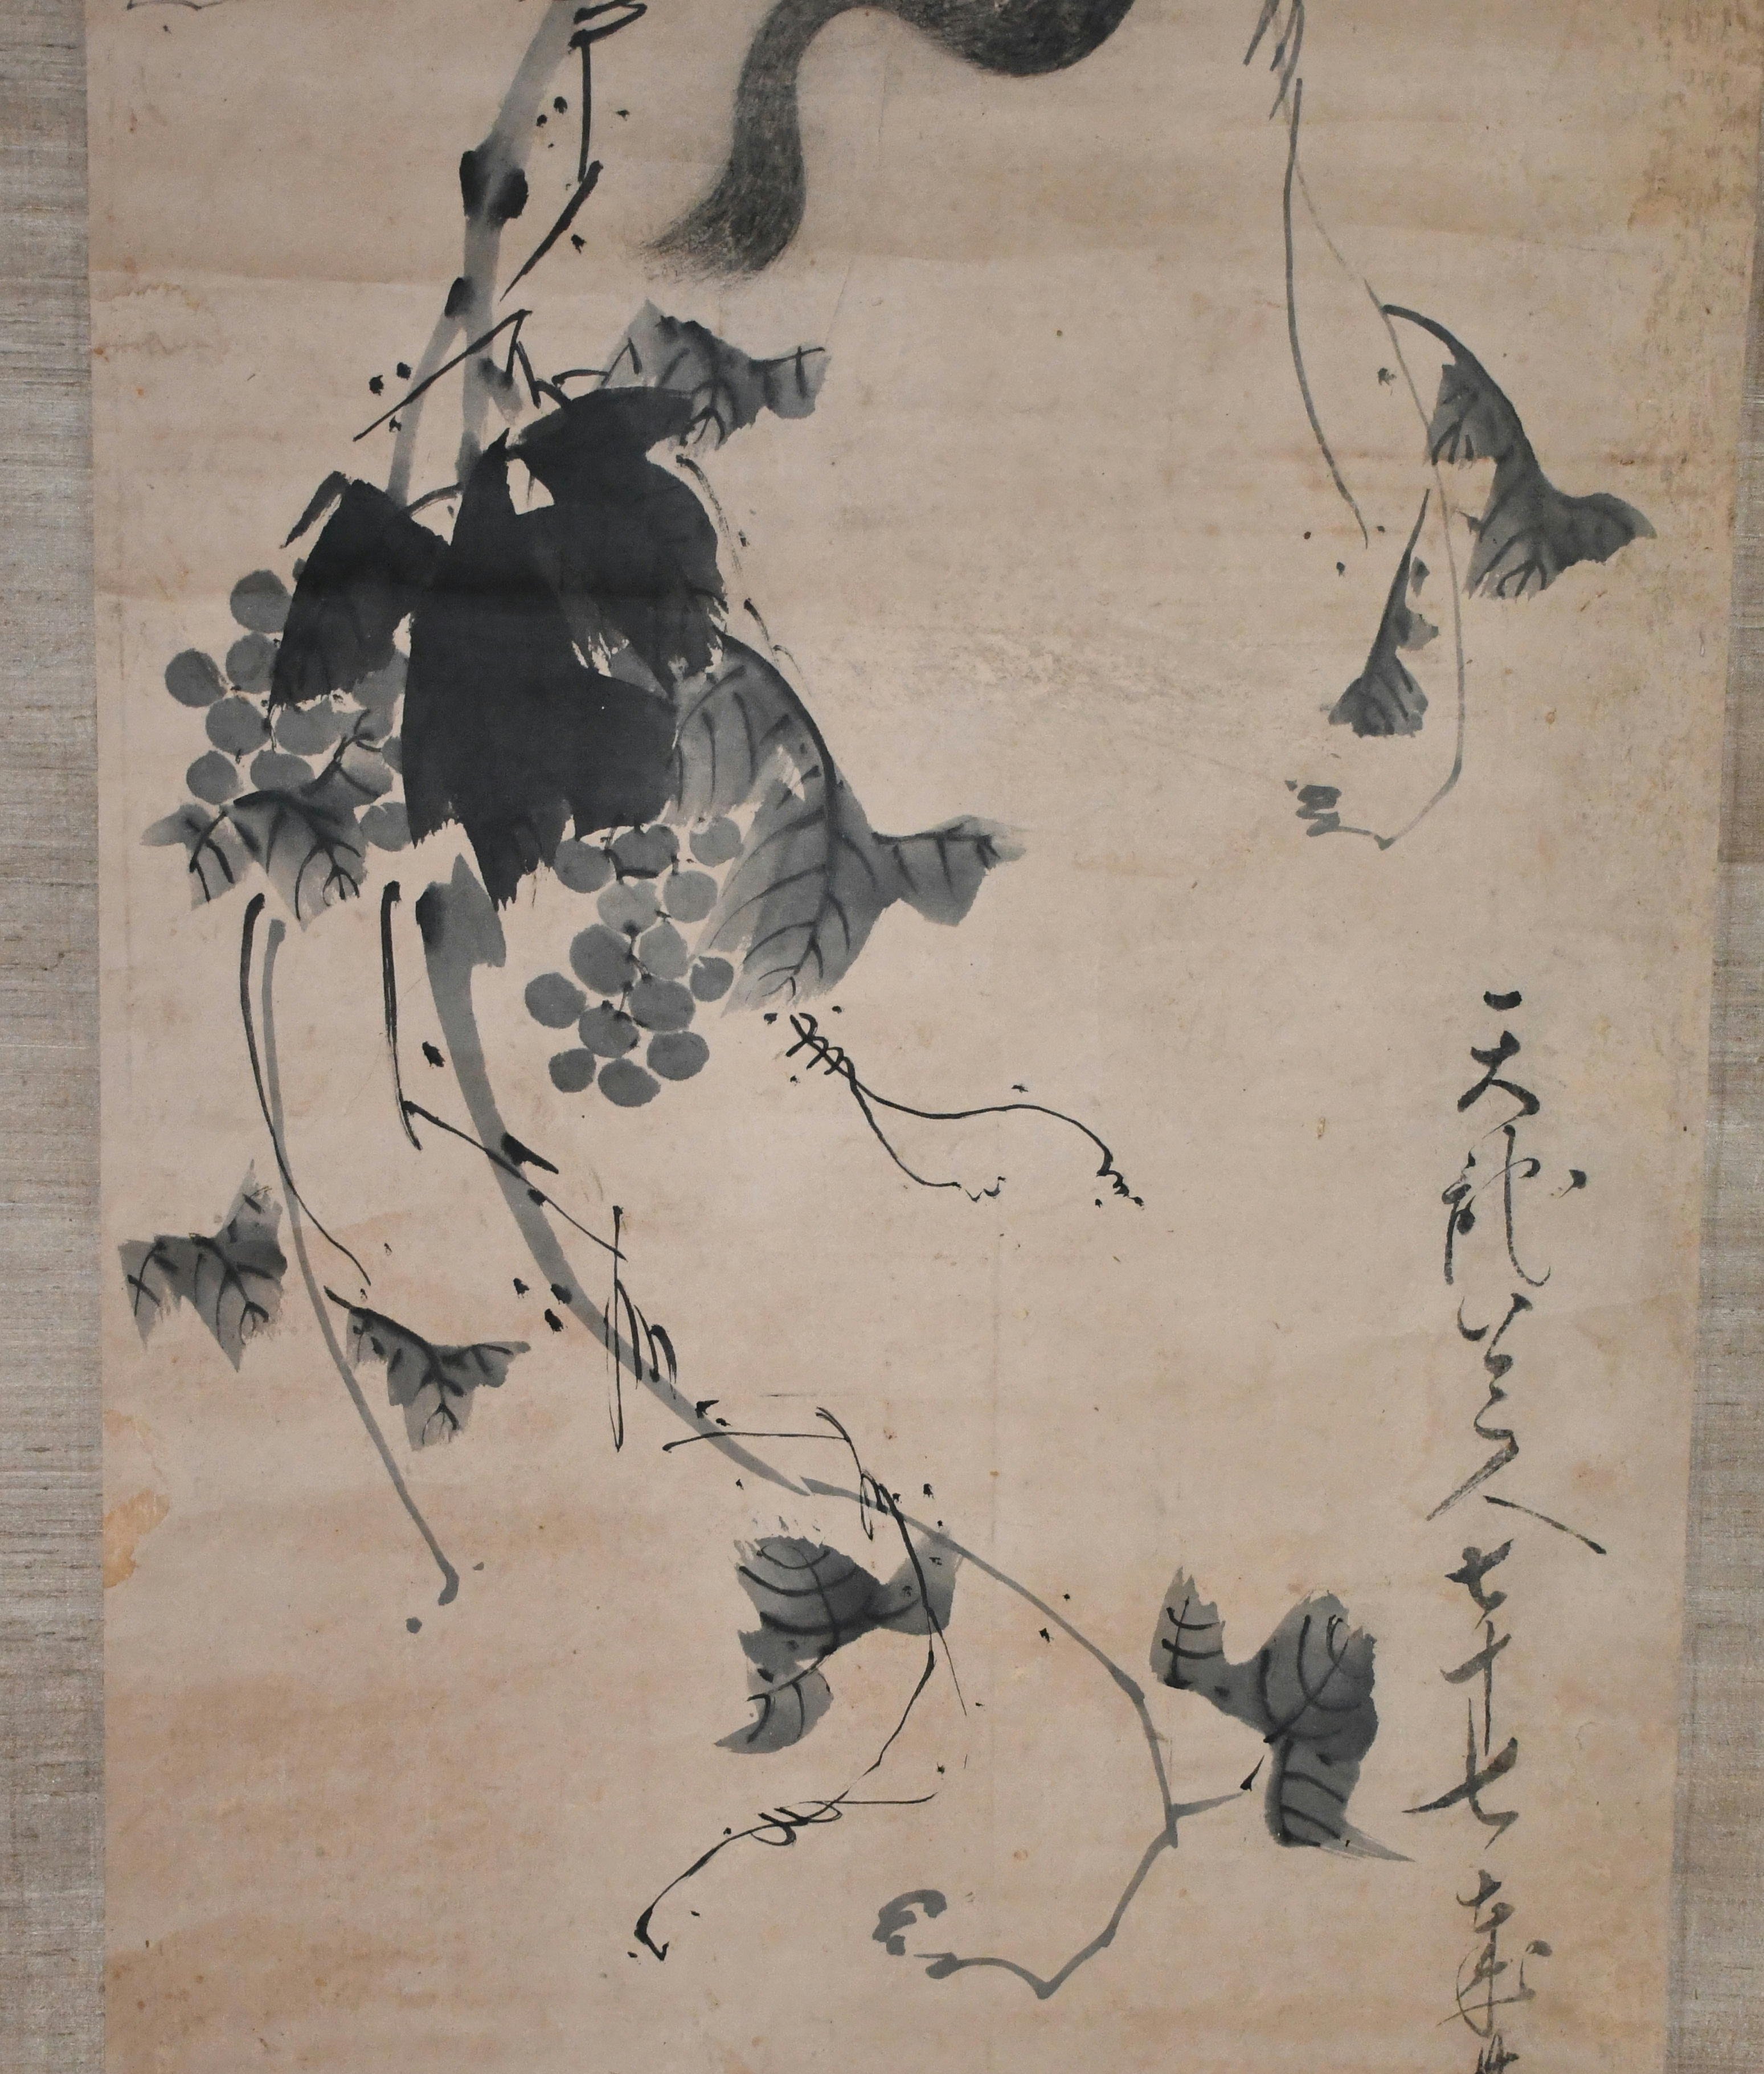 天龍道人七十七歲